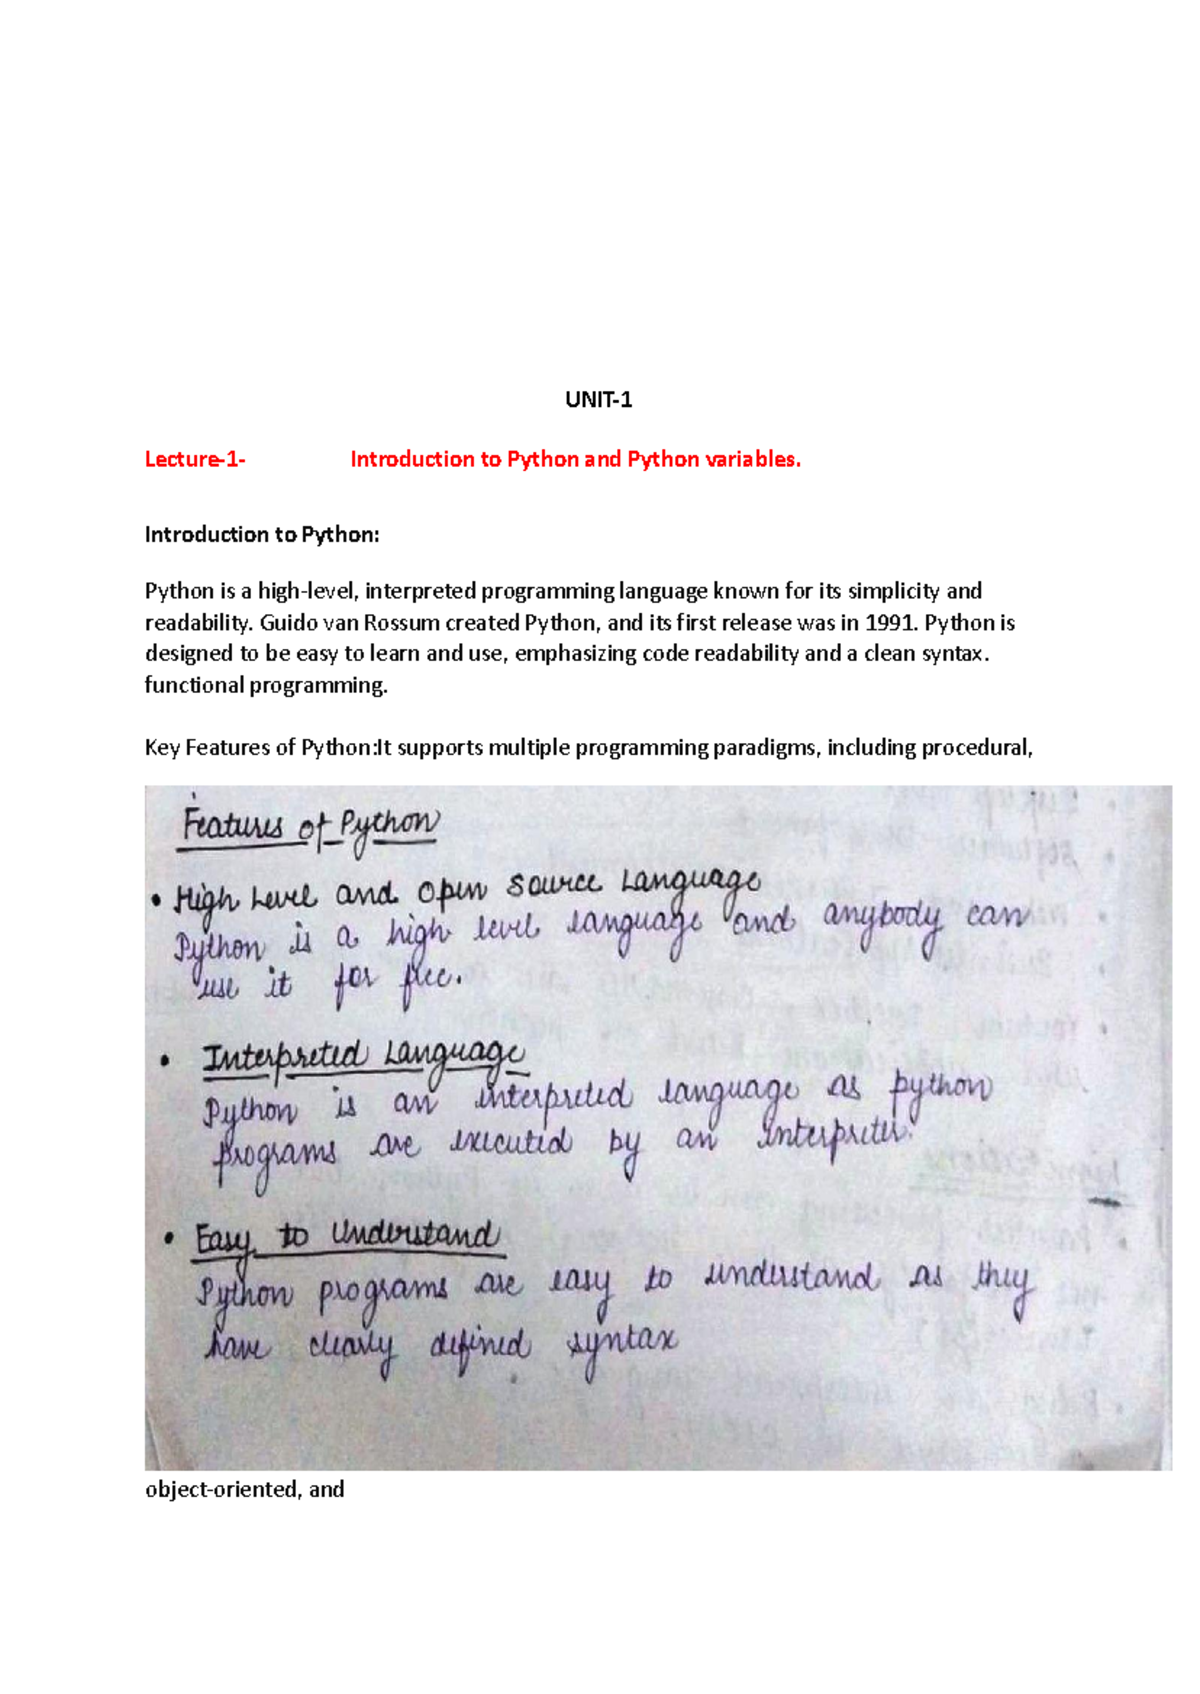 UNIT-1
Lecture-1- Introduction to Python and Python variables.
Introduction to Python:
Python is a high-level, interpreted programming language known for its simplicity and
readability. Guido van Rossum created Python, and its first release was in 1991. Python is
designed to be easy to learn and use, emphasizing code readability and a clean syntax.
functional programming.
Key Features of Python:It supports multiple programming paradigms, including procedural,
Features of Python
• High Level and open source Language
Python is a high level language and anybody can
use it for free.
• Interpreted Language
Python is an interpreted language as python
programs are executed by an interpreter.
• Easy to Understand
Python programs are easy to understand as they
have clearly defined syntax
object-oriented, and